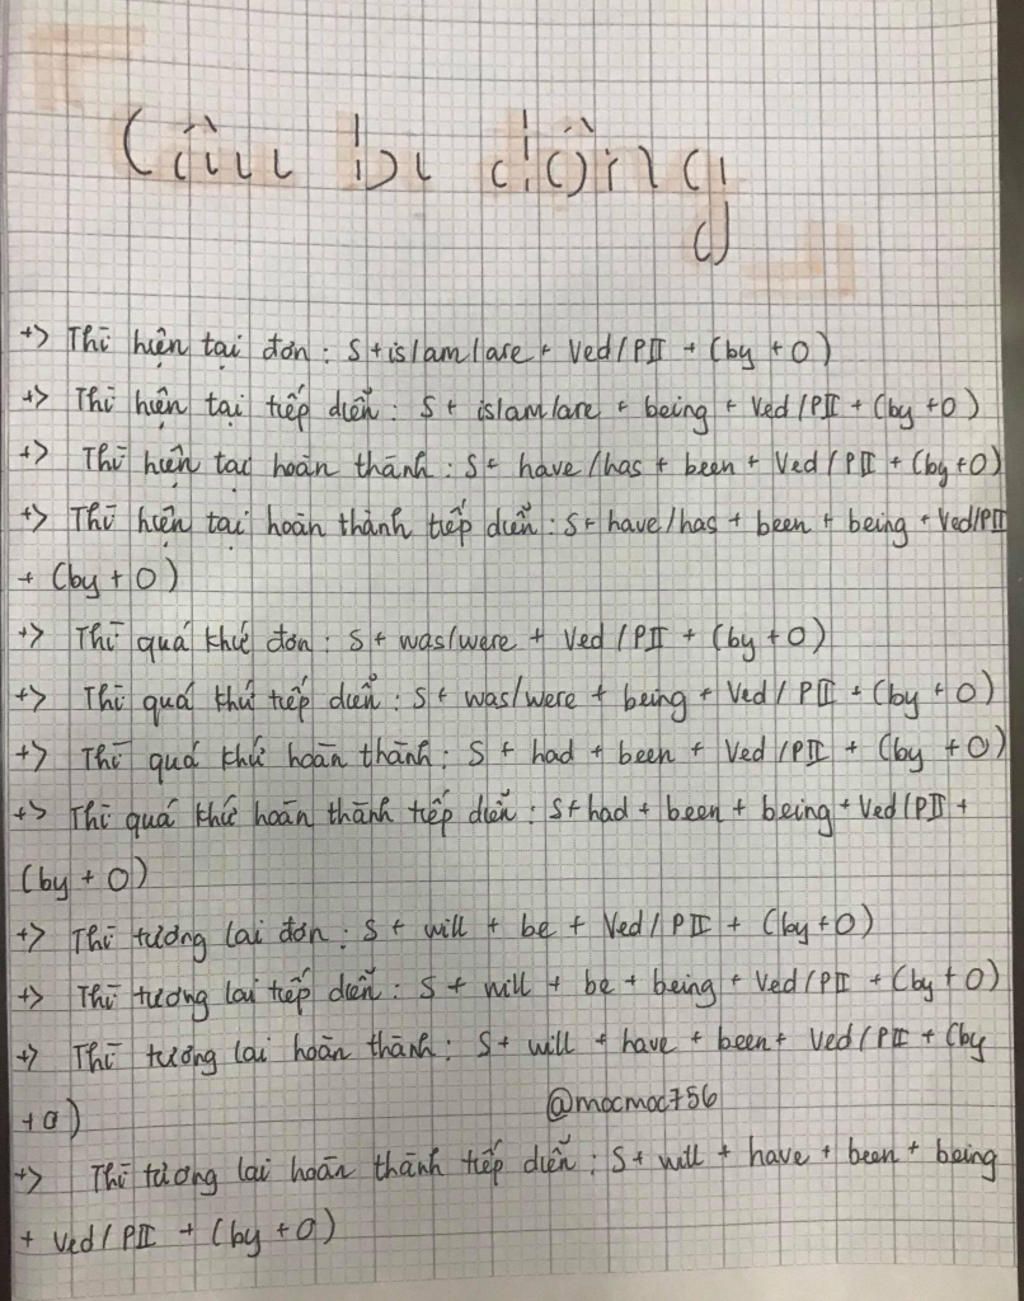 Câu bị động
+> Thì hiện tại đơn : S + is/am/are + Ved/PII + (by + O)
+> Thì hiện tại tiếp diễn : S + is/am/are + being + Ved/PII + (by + O)
+> Thì hiện tại hoàn thành : S + have/has + been + Ved/PII + (by + O)
+> Thì hiện tại hoàn thành tiếp diễn : S + have/has + been + being + Ved/PII
+ (by + O)
+> Thì quá khứ đơn : S + was/were + Ved/PII + (by + O)
+> Thì quá khứ tiếp diễn : S + was/were + being + Ved/PII + (by + O)
+> Thì quá khứ hoàn thành : S + had + been + Ved/PII + (by + O)
+> Thì quá khứ hoàn thành tiếp diễn : S + had + been + being + Ved/PII +
(by + O)
+> Thì tương lai đơn : S + will + be + Ved/PII + (by + O)
+> Thì tương lai tiếp diễn : S + will + be + being + Ved/PII + (by + O)
+> Thì tương lai hoàn thành : S + will + have + been + Ved/PII + (by
+ O)
@mocmoc756
+> Thì tương lai hoàn thành tiếp diễn : S + will + have + been + being
+ Ved/PII + (by + O)